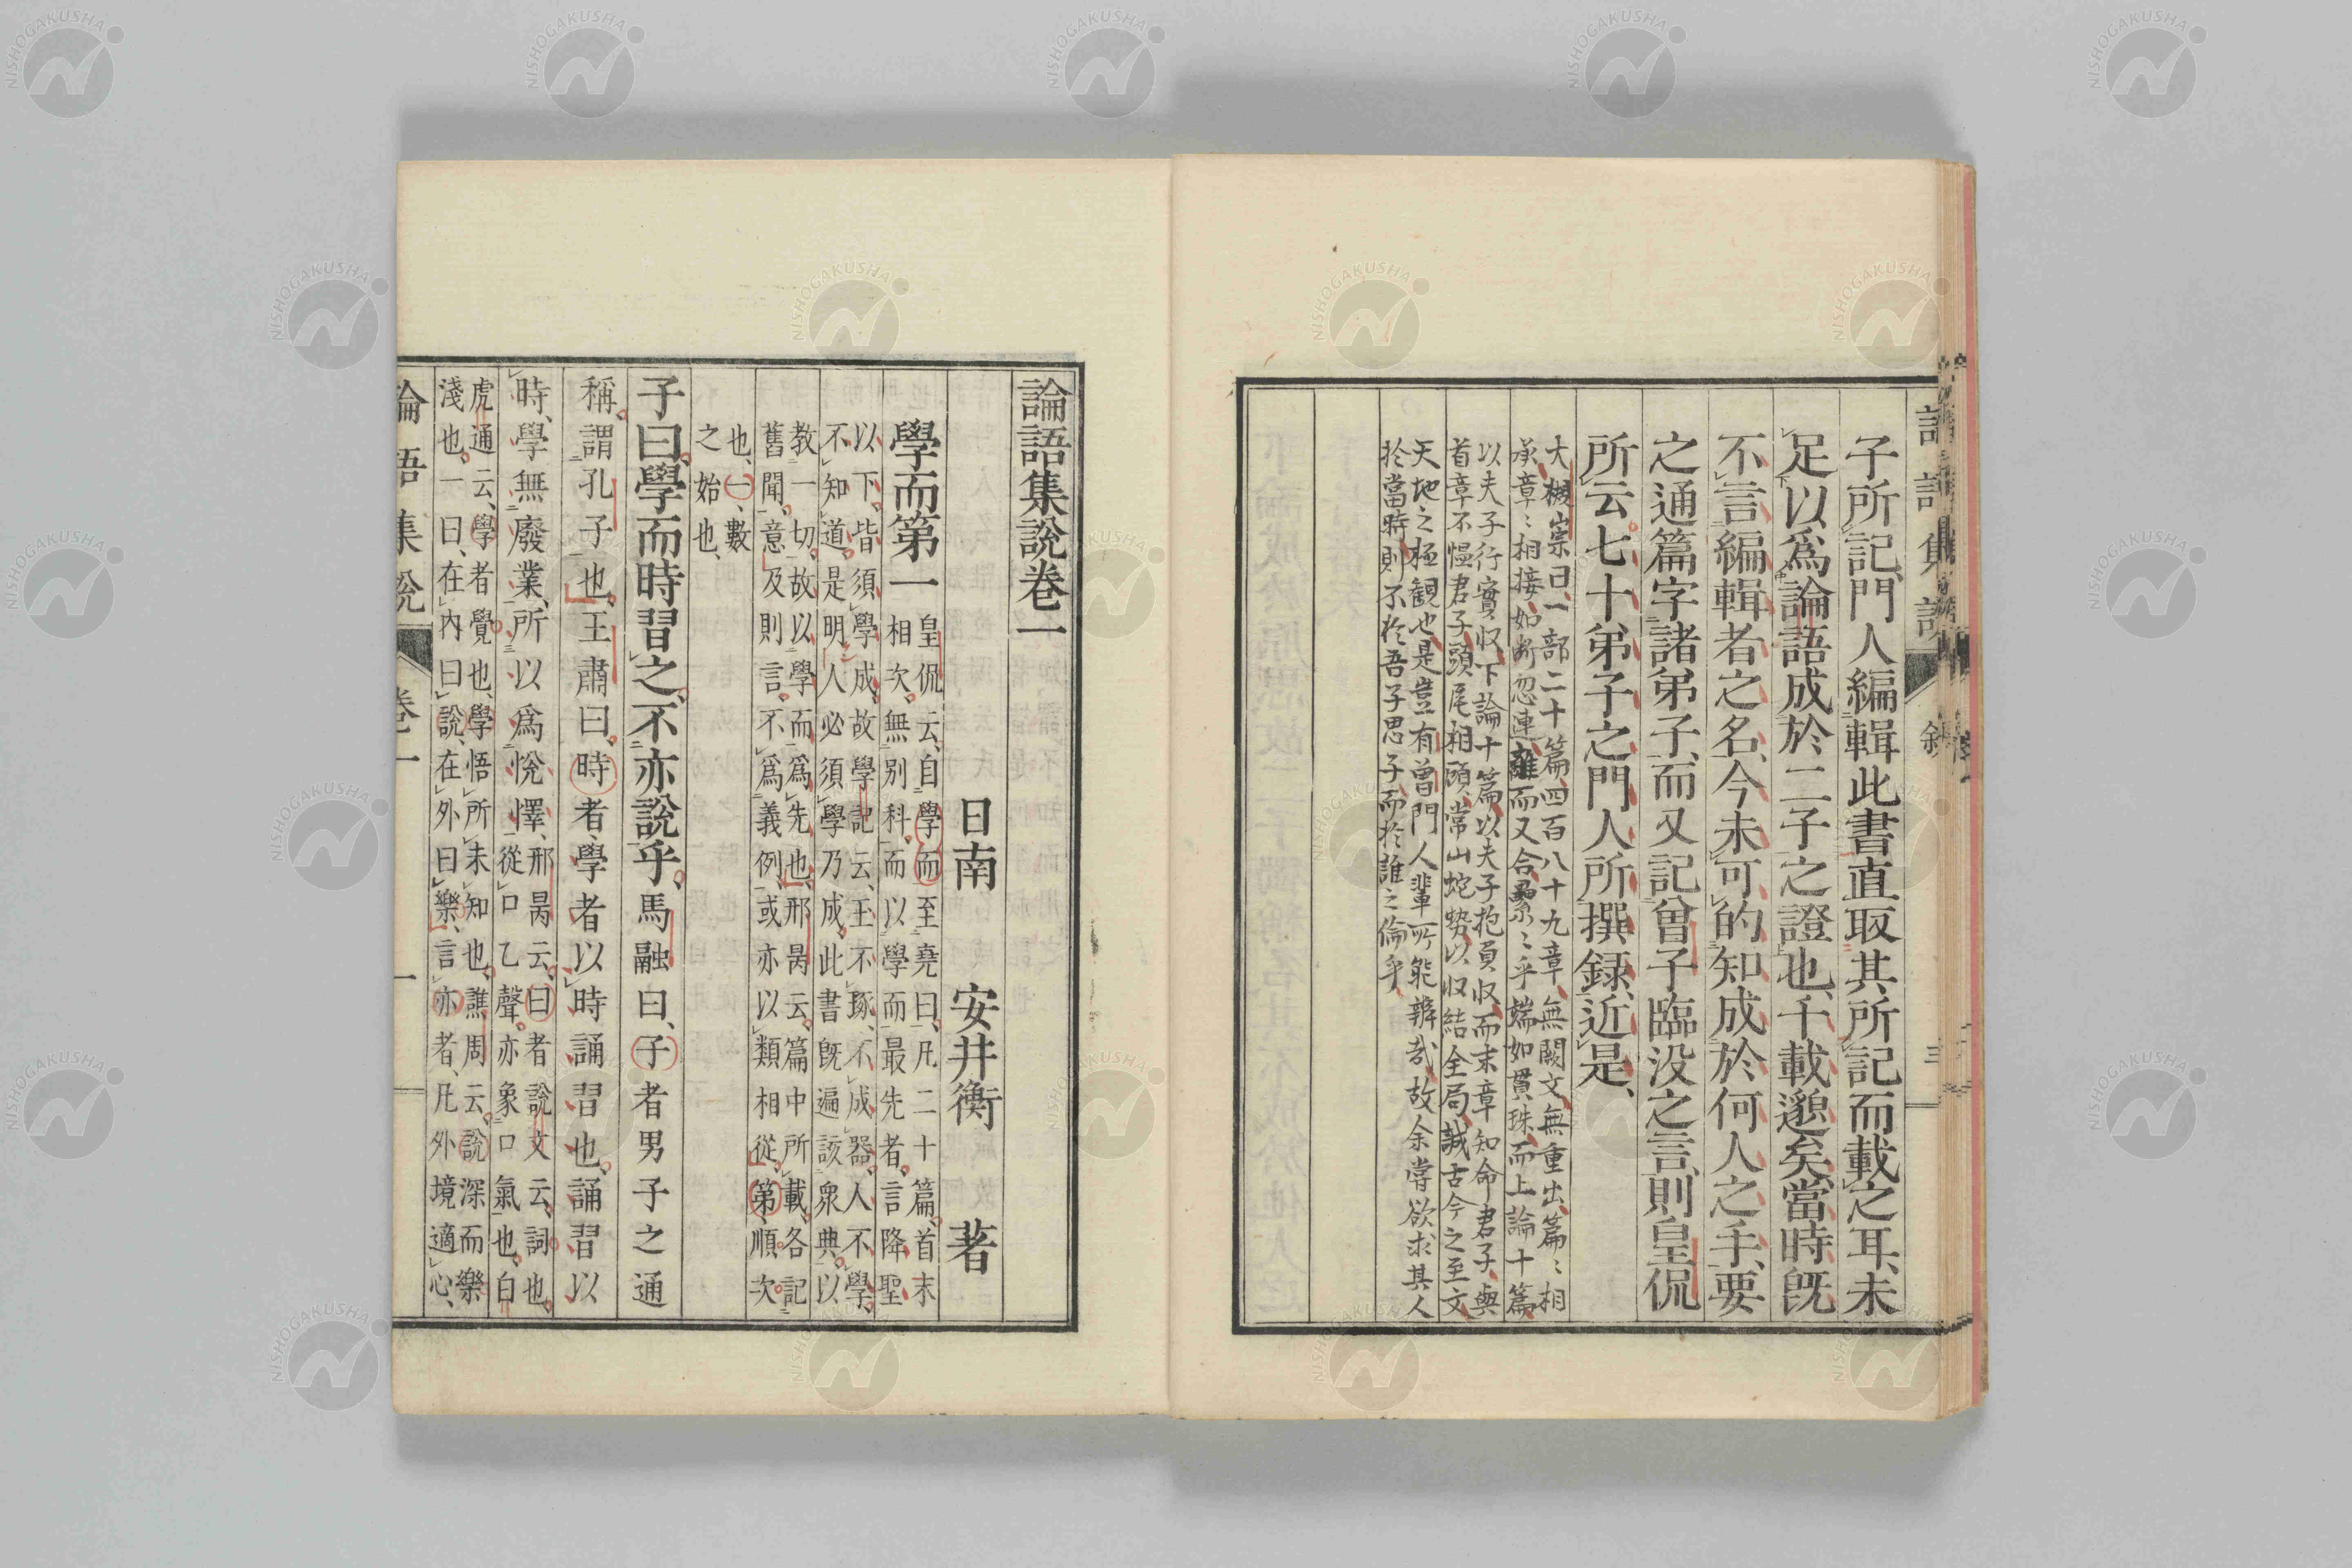 子所記、門人編輯此書、直取其所記而載之耳、未
足以爲論語成於二子之證也、千載邈矣、當時既
不言編輯者之名、今未可的知成於何人之手、要
之通篇字諸弟子、而又記曾子臨沒之言、則皇侃
所云七十弟子之門人所撰録、近是、
大槻崇曰、一部二十篇、四百八十九章、無闕文、無重出、篇〻相
承、章〻相接、如斷忽連、離而又合、纍〻乎端如貫珠、而上論十篇
以夫子行實收、下論十篇、以夫子抱負收、而末章知命君子、與
首章不慍君子、頭尾相顧、常山蛇勢、以收結全局、誠古今之至文
天地之極観也、是豈有曾門人輩所能辨哉、故余嘗欲求其人
於當時、則不於吾子思子、而於誰之倫乎、
敘
三
論語集說卷一
日南 安井衡 著
學而第一
皇侃云、自學而至堯曰、凡二十篇、首末
相次、無別科、而以學而最先者、言降聖
以下、皆須學成、故學記云、玉不琢、不成器、人不學、
不知道、是明人必須學乃成、此書既遍該衆典、以
教一切、故以學而爲先也、邢昺云、篇中所載、各記
舊聞、意及則言、不爲義例、或亦以類相從、第、順次
也、一、數
之始也、
子曰、學而時習之、不亦說乎、馬融曰、子者男子之通
稱、謂孔子也、王肅曰、時者、學者以時誦習也、誦習以
時、學無廢業、所以爲悅懌、
邢昺云、曰者說文云、詞也、
從口乙聲、亦象口氣也、白
虎通云、學者覺也、學悟所未知也、譙周云、說深而樂
淺也、一曰、在內曰說、在外曰樂、言亦者、凡外境適心、
論語集說 卷一 一